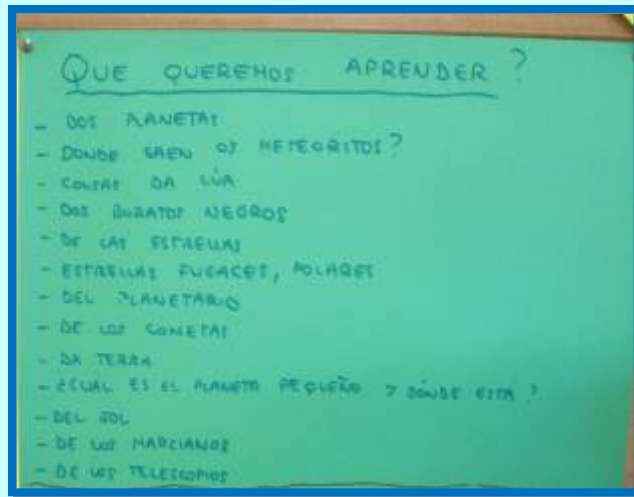 QUE QUEREMOS APRENDER?
- DOS PLANETAS
- DONDE SAEN OS METEORITOS?
- COUSAS DA LÚA
- DOS BURATOS NEGROS
- DE LAS ESTRELLAS
- ESTRELLAS FUGACES, POLARES
- DEL PLANETARIO
- DE LOS COMETAS
- DA TERRA
- ¿CUAL ES EL PLANETA PEQUEÑO Y DÓNDE ESTÁ?
- DEL SOL
- DE LOS MARCIANOS
- DE LOS TELESCOPIOS